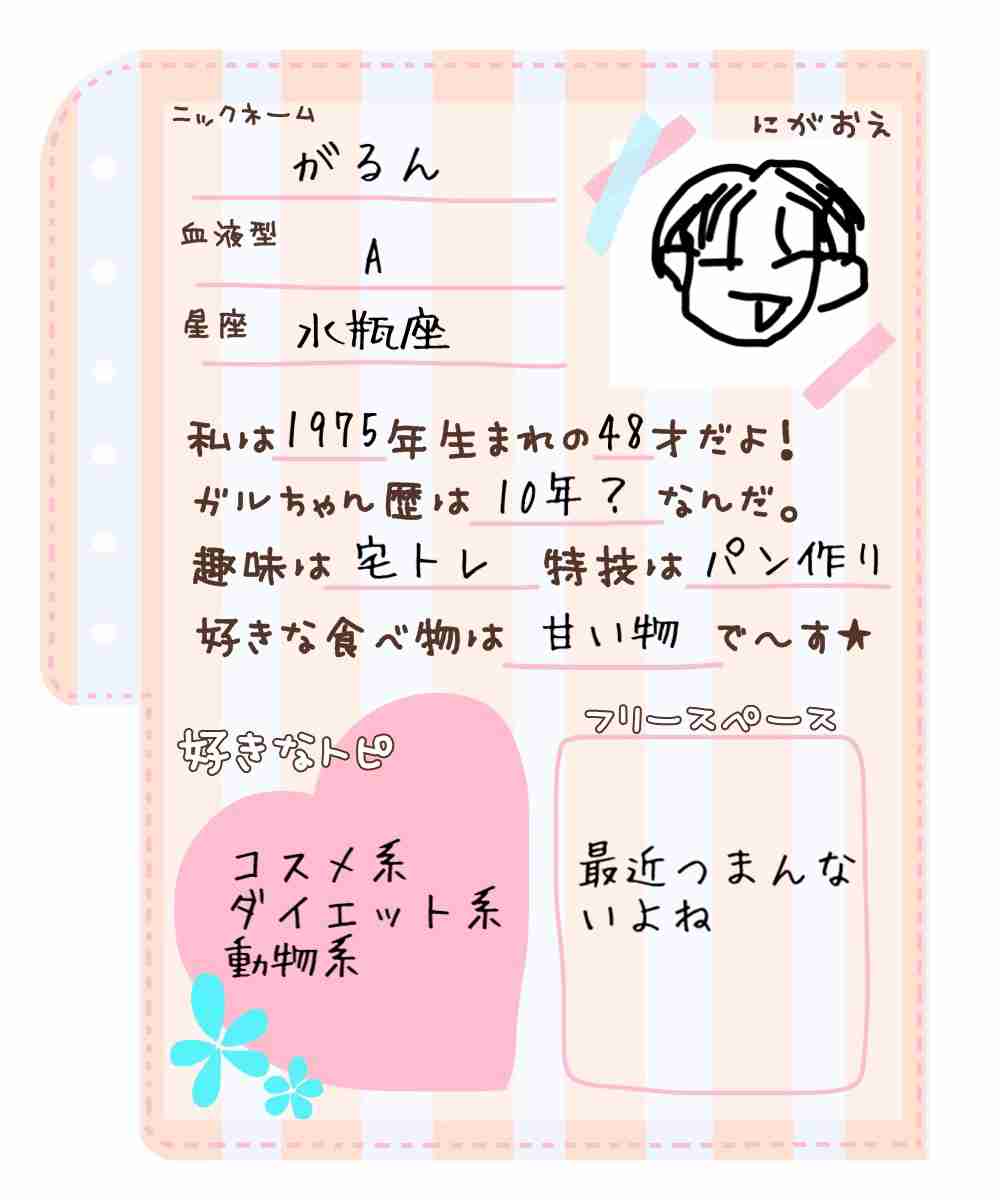 ニックネーム
がるん
にがおえ
血液型
A
星座 水瓶座
私は1975年生まれの48才だよ!
ガルちゃん歴は 10年? なんだ。
趣味は 宅トレ 特技は パン作り
好きな食べ物は 甘い物 で〜す★
好きなトピ
コスメ系
ダイエット系
動物系
フリースペース
最近つまんな
いよね